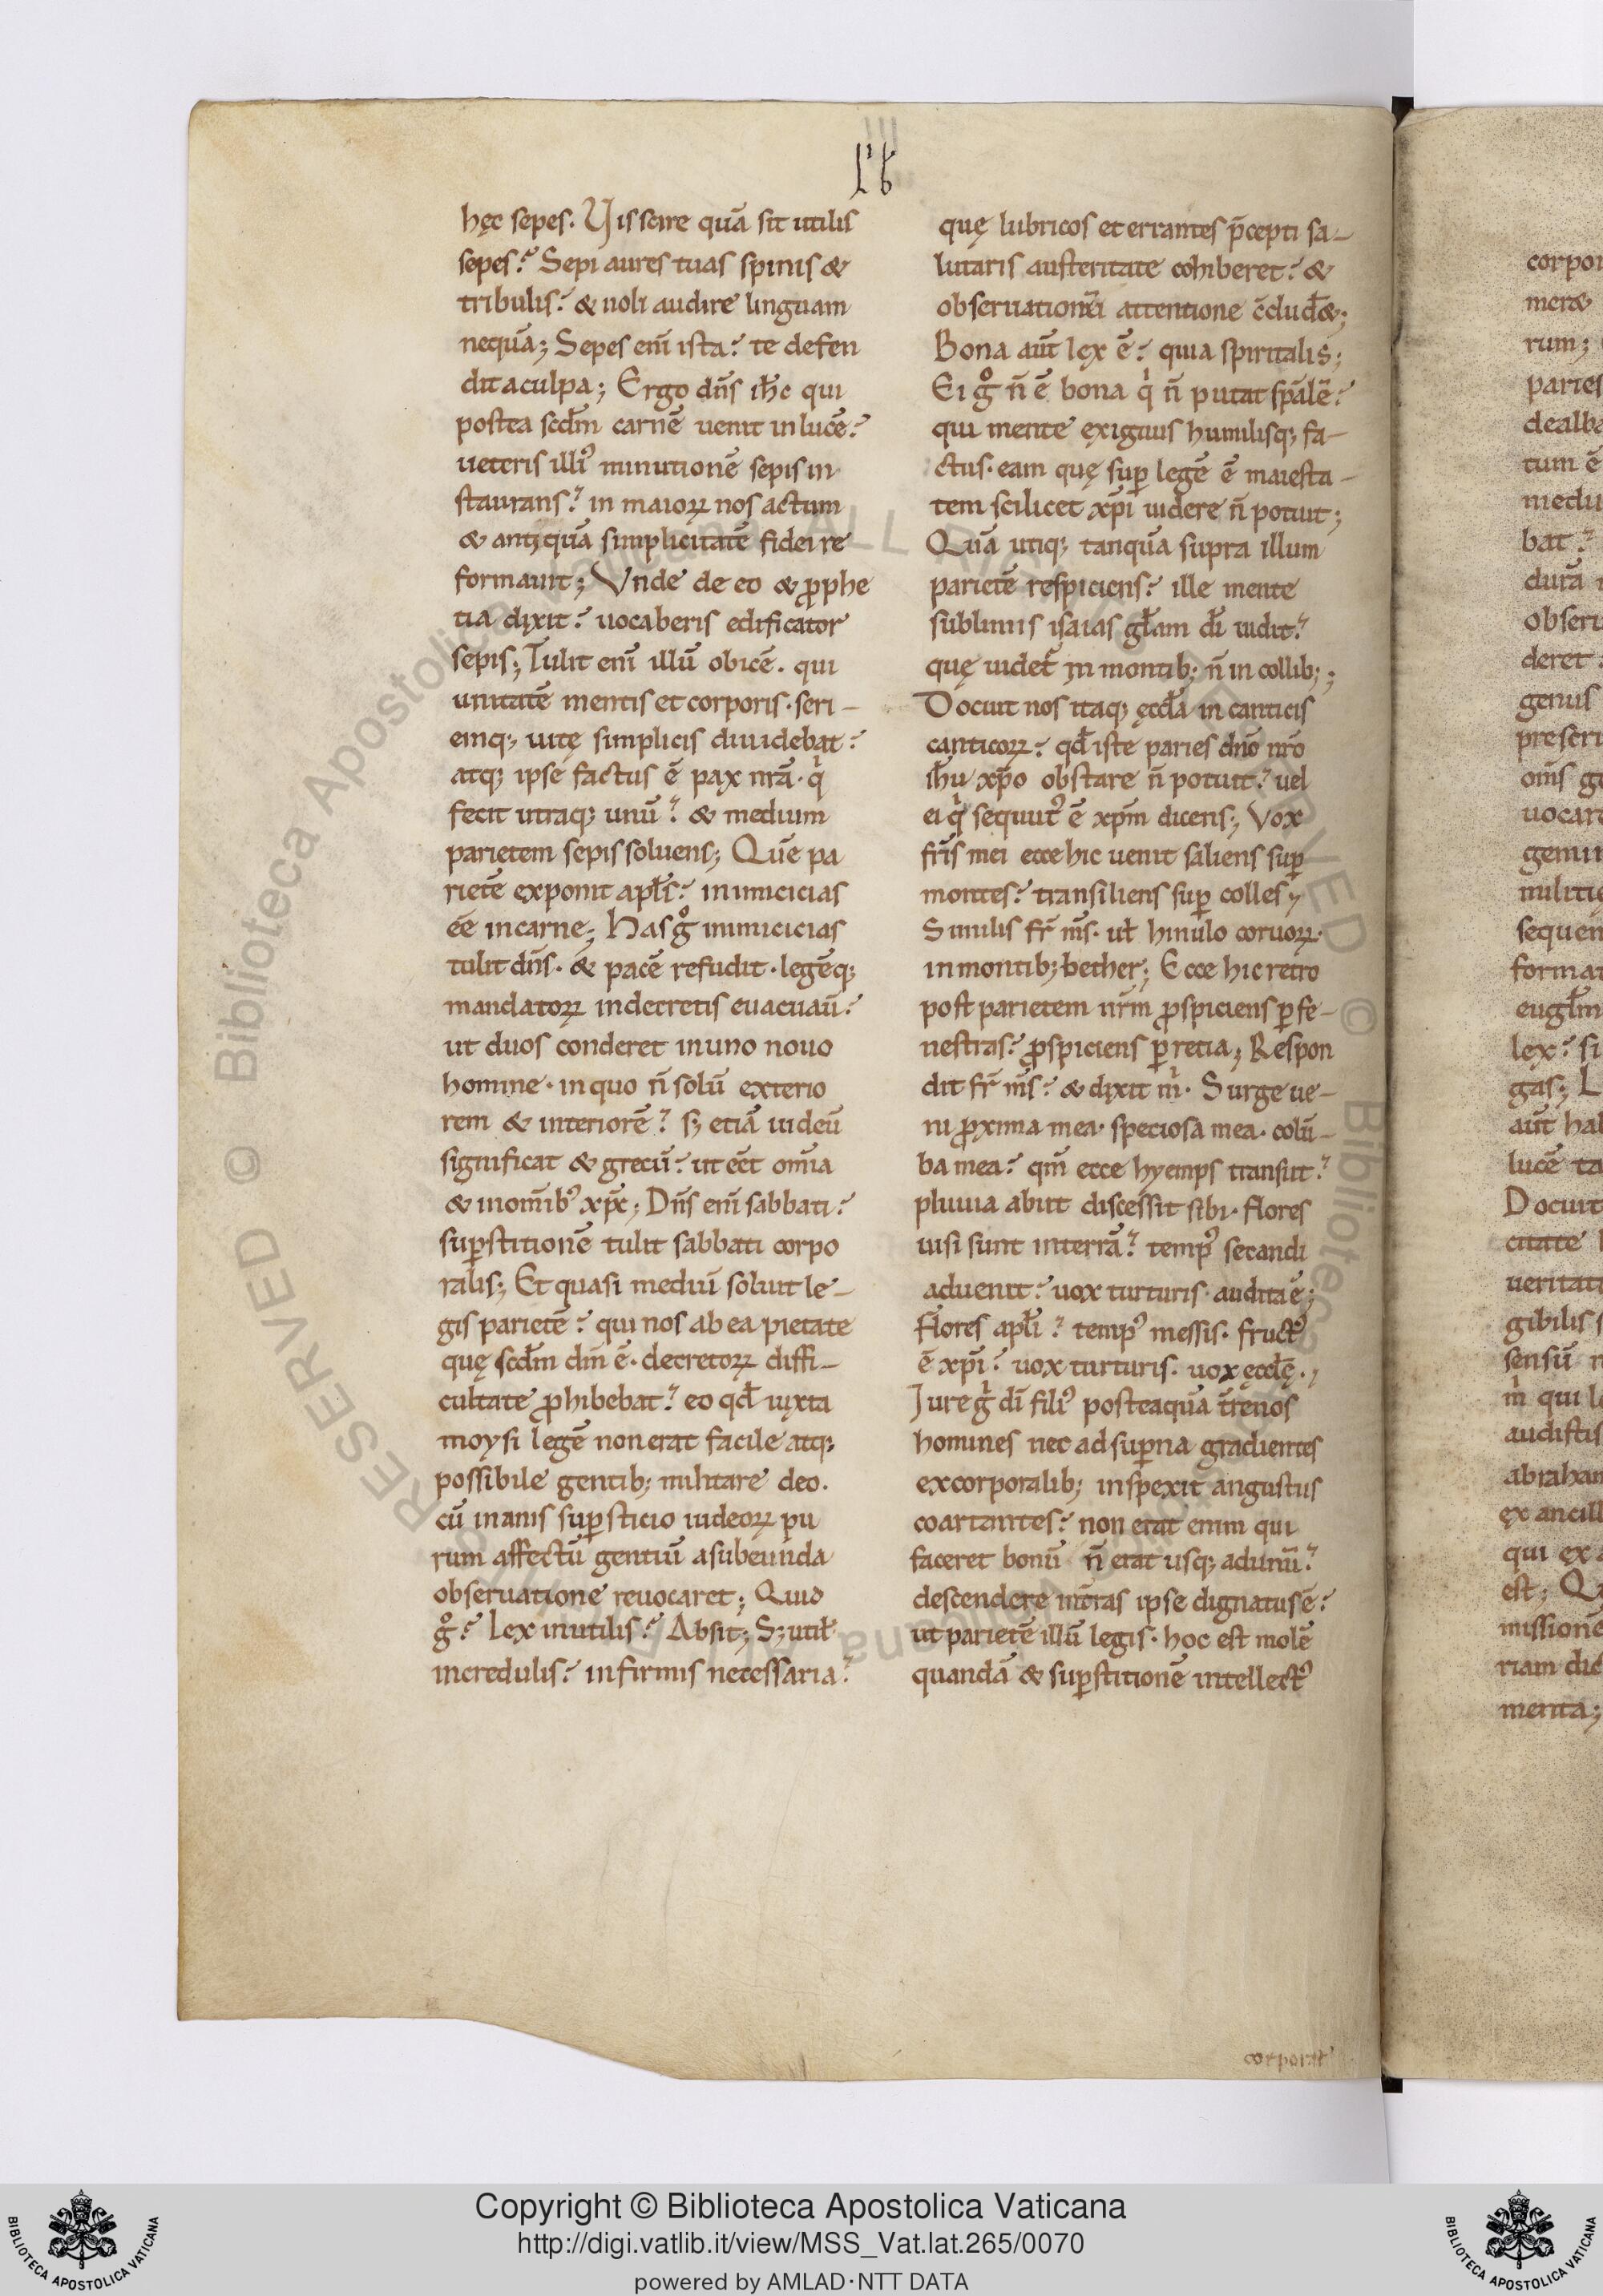 hęc sepes. Vis scire quā sit utilis
sepes? Sepi aures tuas spinis &
tribulis? & noli audire linguam
nequā; Sepes eni̅ ista? te defen
dit a culpa; Ergo dn̅s ih̅c qui
postea scdm̅ carnē uenit in lucē?
ueteris illiꝰ minutionē sepis in
staurans? in maioꝝ nos actum
& antiquā simplicitatē fidei re
formauit; Vnde de eo & ꝓphe
tia dixit? uocaberis edificator
sepis; Tulit eni̅ illū obicē. qui
unitatē mentis et corporis. seri-
emq; uitę simplicis diuidebat?
atq; ipse factus ē pax nr̅a. qͥ
fecit utraq; unū? & medium
parietem sepis soluens; Quē pa
rietē exponit apl̅s? inimicicias
ēē in carne; Has gͦ inimicicias
tulit dn̅s. & pacē refudit. legēq;
mandatoꝝ in decretis euacuau̅?
ut duos conderet in uno nouo
homine. in quo n̅ solū exterio
rem & interiorē? s; etiā iudeū
significat & grecū? ut eēt om̅ia
& in om̅ibꝰ xp̅c; Dn̅s eni̅ sabbati?
suꝑstitionē tulit sabbati corpo
ralis; Et quasi mediū soluit le-
gis parietē? qui nos ab ea pietate
quę scdm̅ dm̅ ē. decretoꝝ diffi-
cultate ꝓhibebat? eo qd̅ iuxta
moysi legē non erat facile atq;
possibile gentib; militare deo.
cū inanis suꝑsticio iudeoꝝ pu
rum affectū gentiū a subeunda
obseruatione reuocaret; Quid
gͦ? Lex inutilis? Absit; S; util̅
incredulis? infirmis necessaria?
quę lubricos et errantes p̅cepti sa-
lutaris austeritate cohiberet? &
obseruationu̅ attentione c̅clud&;
Bona aut̅ lex ē? quia spiritalis;
Ei gͦ n̅ ē bona qͥ n̅ putat sp̅alē?
qui mente exiguus humilisq; fa-
ctus. eam quę suꝑ legē ē maiesta-
tem scilicet xp̅i uidere n̅ potuit;
Quā utiq; tanquā supra illum
parietē respiciens? ille mente
sublimis isaias gl̅am di̅ uidit?
quę uidet᷑ in montib; n̅ in collib;;
Docuit nos itaq; ęccl̅a in canticis
canticoꝝ? qd̅ iste paries dn̅o nr̅o
ih̅u xp̅o obstare n̅ potuit? uel
ei qͥ sequutꝰ ē xp̅m dicens; Vox
fr̅is mei ecce hic uenit saliens suꝑ
montes? transiliens suꝑ colles;
Similis fr̅ m̅s. ul̅ hinulo ceruoꝝ.
in montib; bether; Ecce hic retro
post parietem nr̅m ꝓspiciens ꝑ fe-
nestras? ꝓspiciens ꝑ retia; Respon
dit fr̅ m̅s? & dixit mͥ. Surge ue-
ni ꝓxima mea. speciosa mea. colū-
ba mea? qm̅ ecce hyemps transiit?
pluuia abiit discessit sibi. flores
uisi sunt in terrā? tempꝰ secandi
aduenit? uox turturis. audita ē;
flores apl̅i? tempꝰ messis. fructꝰ
ē xp̅i? uox turturis. uox ęccl̅ę.;
Iure gͥ di̅ filiꝰ posteaquā t̅renos
homines nec ad suꝑna gradientes
ex corporalib; inspexit angustiis
coartantes? non erat enim qui
faceret bonū n̅ erat usq; ad unū?
descendere in t̅ras ipse dignatus ē?
ut parietē illū legis. hoc est molē
quandā & suꝑstitionē intellectꝰ
corporal̅
corpor
rum;
paries
dealba
tum ē
medu
bat?
durā
obseru
deret
genus
prescri
om̅s g
uocar
genu
militię
sequen
forma
eugl̅m
lex? si
gas; L
aut̅ hab
lucē ta
Docuit
citate
ueritati
gibilis
sensū
mͥ qui le
audistis
abraham
ex ancill
qui ex
est; Q
missionē
riam dic
menta;
Copyright © Biblioteca Apostolica Vaticana
http://digi.vatlib.it/view/MSS_Vat.lat.265/0070
powered by AMLAD·NTT DATA
BIBLIOTECA APOSTOLICA VATICANA
BIBLIOTECA APOSTOLICA VATICANA